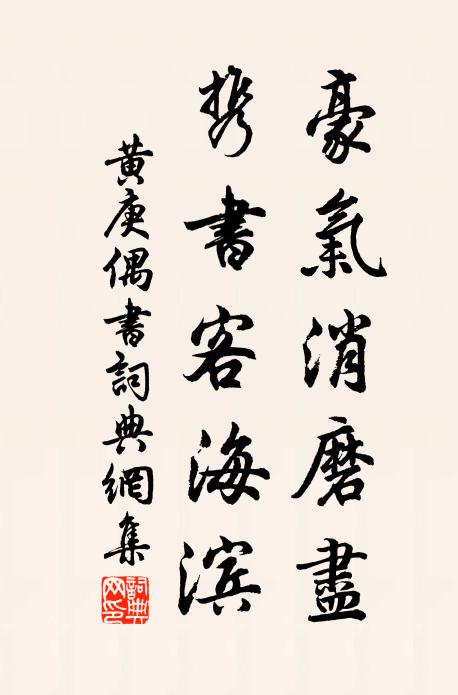 豪氣消磨盡
携書客海滨
黄庚偶書詞典網集
詞典网印